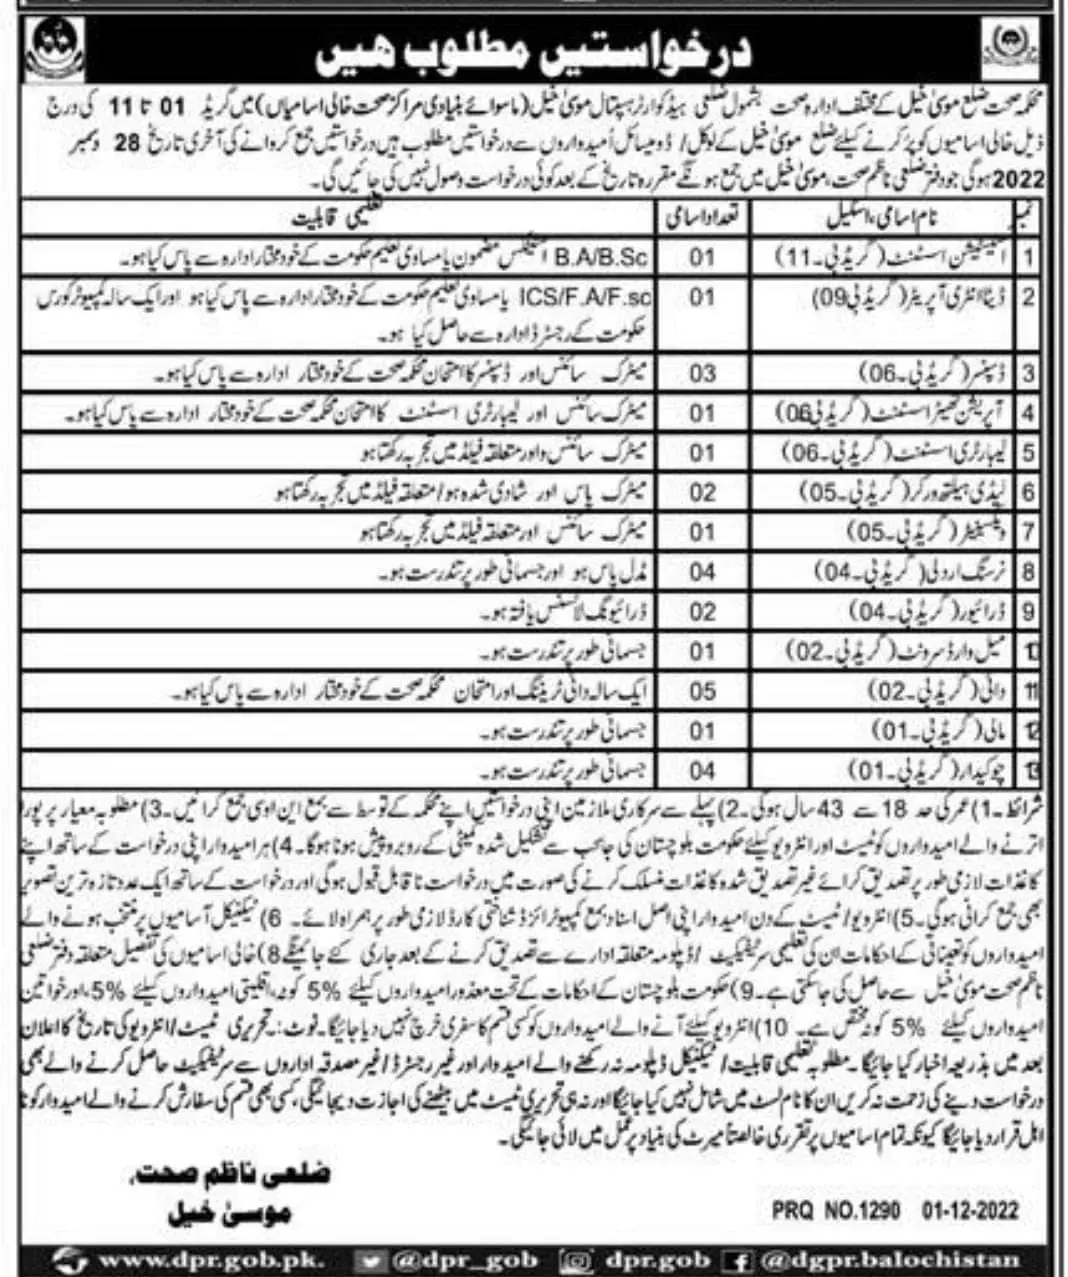 درخواستیں مطلوب ھیں
محکمہ صحت ضلع موسیٰ خیل کے مختلف ادارہ صحت بشمول ضلعی ہیڈ کوارٹر ہسپتال موسیٰ خیل (ماسوائے بنیادی مراکز صحت خالی اسامیاں) میں گریڈ 01 تا 11 کی درج
ذیل خالی اسامیوں کو پُر کرنے کیلئے ضلع موسیٰ خیل کے لوکل/ ڈومیسائل اُمیدواروں سے درخواستیں مطلوب ہیں درخواستیں جمع کروانے کی آخری تاریخ 28 دسمبر
2022 ہوگی جو دفتر ضلعی ناظم صحت، موسیٰ خیل میں جمع ہونگے مقررہ تاریخ کے بعد کوئی درخواست وصول نہیں کی جائیں گی۔
نمبر نام اسامی، اسکیل تعداد اسامی تعلیمی قابلیت
1 اسٹیٹیشن اسسٹنٹ (گریڈ بی۔11) 01 B.A/B.Sc اسٹیٹکس مضمون یا مساوی تعلیم حکومت کے خود مختار ادارہ سے پاس کیا ہو۔
2 ڈیٹا انٹری آپریٹر (گریڈ بی 09) 01 ICS/F.A/F.sc یا مساوی تعلیم حکومت کے خود مختار ادارہ سے پاس کیا ہو اور ایک سالہ کمپیوٹر کورس
حکومت کے رجسٹرڈ ادارہ سے حاصل کیا ہو۔
3 ڈسپنسر (گریڈ بی۔06) 03 میٹرک سائنس اور ڈسپنسر کا امتحان محکمہ صحت کے خود مختار ادارہ سے پاس کیا ہو۔
4 آپریشن تھیٹر اسسٹنٹ (گریڈ بی 06) 01 میٹرک سائنس اور لیبارٹری اسسٹنٹ کا امتحان محکمہ صحت کے خود مختار ادارہ سے پاس کیا ہو۔
5 لیبارٹری اسسٹنٹ (گریڈ بی۔06) 01 میٹرک سائنس و اور متعلقہ فیلڈ میں تجربہ رکھتا ہو
6 لیڈی ہیلتھ ورکر (گریڈ بی۔05) 02 میٹرک پاس اور شادی شدہ ہو/ متعلقہ فیلڈ میں تجربہ رکھتا ہو
7 ویکسینیٹر (گریڈ بی۔05) 01 میٹرک سائنس اور متعلقہ فیلڈ میں تجربہ رکھتا ہو
8 نرسنگ اردلی (گریڈ بی۔04) 04 مڈل پاس ہو اور جسمانی طور پر تندرست ہو۔
9 ڈرائیور (گریڈ بی۔04) 02 ڈرائیونگ لائسنس یافتہ ہو۔
10 میل وارڈ سرونٹ (گریڈ بی۔02) 01 جسمانی طور پر تندرست ہو۔
11 دائی (گریڈ بی۔02) 05 ایک سالہ دائی ٹریننگ اور امتحان محکمہ صحت کے خود مختار ادارہ سے پاس کیا ہو۔
12 مالی (گریڈ بی۔01) 01 جسمانی طور پر تندرست ہو۔
13 چوکیدار (گریڈ بی۔01) 04 جسمانی طور پر تندرست ہو۔
شرائط۔1) عمر کی حد 18 سے 43 سال ہوگی۔2) پہلے سے سرکاری ملازمین اپنی درخواستیں اپنے محکمہ کے توسط سے بمع این او سی جمع کرائیں۔3) مطلوبہ معیار پر پورا
اترنے والے امیدواروں کو ٹیسٹ اور انٹرویو کیلئے حکومت بلوچستان کی جانب سے تشکیل شدہ کمیٹی کے روبرو پیش ہونا ہوگا۔4) ہر امیدوار اپنی درخواست کے ساتھ اپنے
کاغذات لازمی طور پر تصدیق کرائے غیر تصدیق شدہ کاغذات منسلک کرنے کی صورت میں درخواست ناقابل قبول ہوگی اور درخواست کے ساتھ ایک عدد تازہ ترین تصویر
بھی جمع کرانی ہوگی۔5) انٹرویو/ ٹیسٹ کے دن امیدوار اپنی اصل اسناد بمع کمپیوٹرائزڈ شناختی کارڈ لازمی طور پر ہمراہ لائے۔ 6) ٹیکنیکل آسامیوں پر منتخب ہونے والے
امیدواروں کو تعیناتی کے احکامات ان کی تعلیمی سرٹیفکیٹ/ ڈپلومہ متعلقہ ادارے سے تصدیق کرنے کے بعد جاری کئے جائینگے 8) خالی اسامیوں کی تفصیل متعلقہ دفتر ضلعی
ناظم صحت موسیٰ خیل سے حاصل کی جاسکتی ہے۔9) حکومت بلوچستان کے احکامات کے تحت معذور امیدواروں کیلئے 5% کوٹہ، اقلیتی امیدواروں کیلئے 5%، اور خواتین
امیدواروں کیلئے 5% کوٹہ مختص ہے۔ 10) انٹرویو کیلئے آنے والے امیدواروں کو کسی قسم کا سفری خرچ نہیں دیا جائیگا۔ نوٹ:۔ تحریری ٹیسٹ/ انٹرویو کی تاریخ کا اعلان
بعد میں بذریعہ اخبار کیا جائیگا۔ مطلوبہ تعلیمی قابلیت/ ٹیکنیکل ڈپلومہ نہ رکھنے والے امیدوار اور غیر رجسٹرڈ/ غیر مصدقہ اداروں سے سرٹیفکیٹ حاصل کرنے والے بھی
درخواست دینے کی زحمت نہ کریں ان کا نام لسٹ میں شامل نہیں کیا جائیگا اور نہ ہی تحریری ٹیسٹ میں بیٹھنے کی اجازت دیجائیگی، کسی بھی قسم کی سفارش کرنے والے امیدوار کو نا
اہل قرار دیا جائیگا کیونکہ تمام اسامیوں پر تقرری خالصتاً میرٹ کی بنیاد پر عمل میں لائی جائیگی۔
ضلعی ناظم صحت،
موسیٰ خیل
PRQ NO.1290 01-12-2022
www.dpr.gob.pk. @dpr_gob dpr.gob @dgpr.balochistan